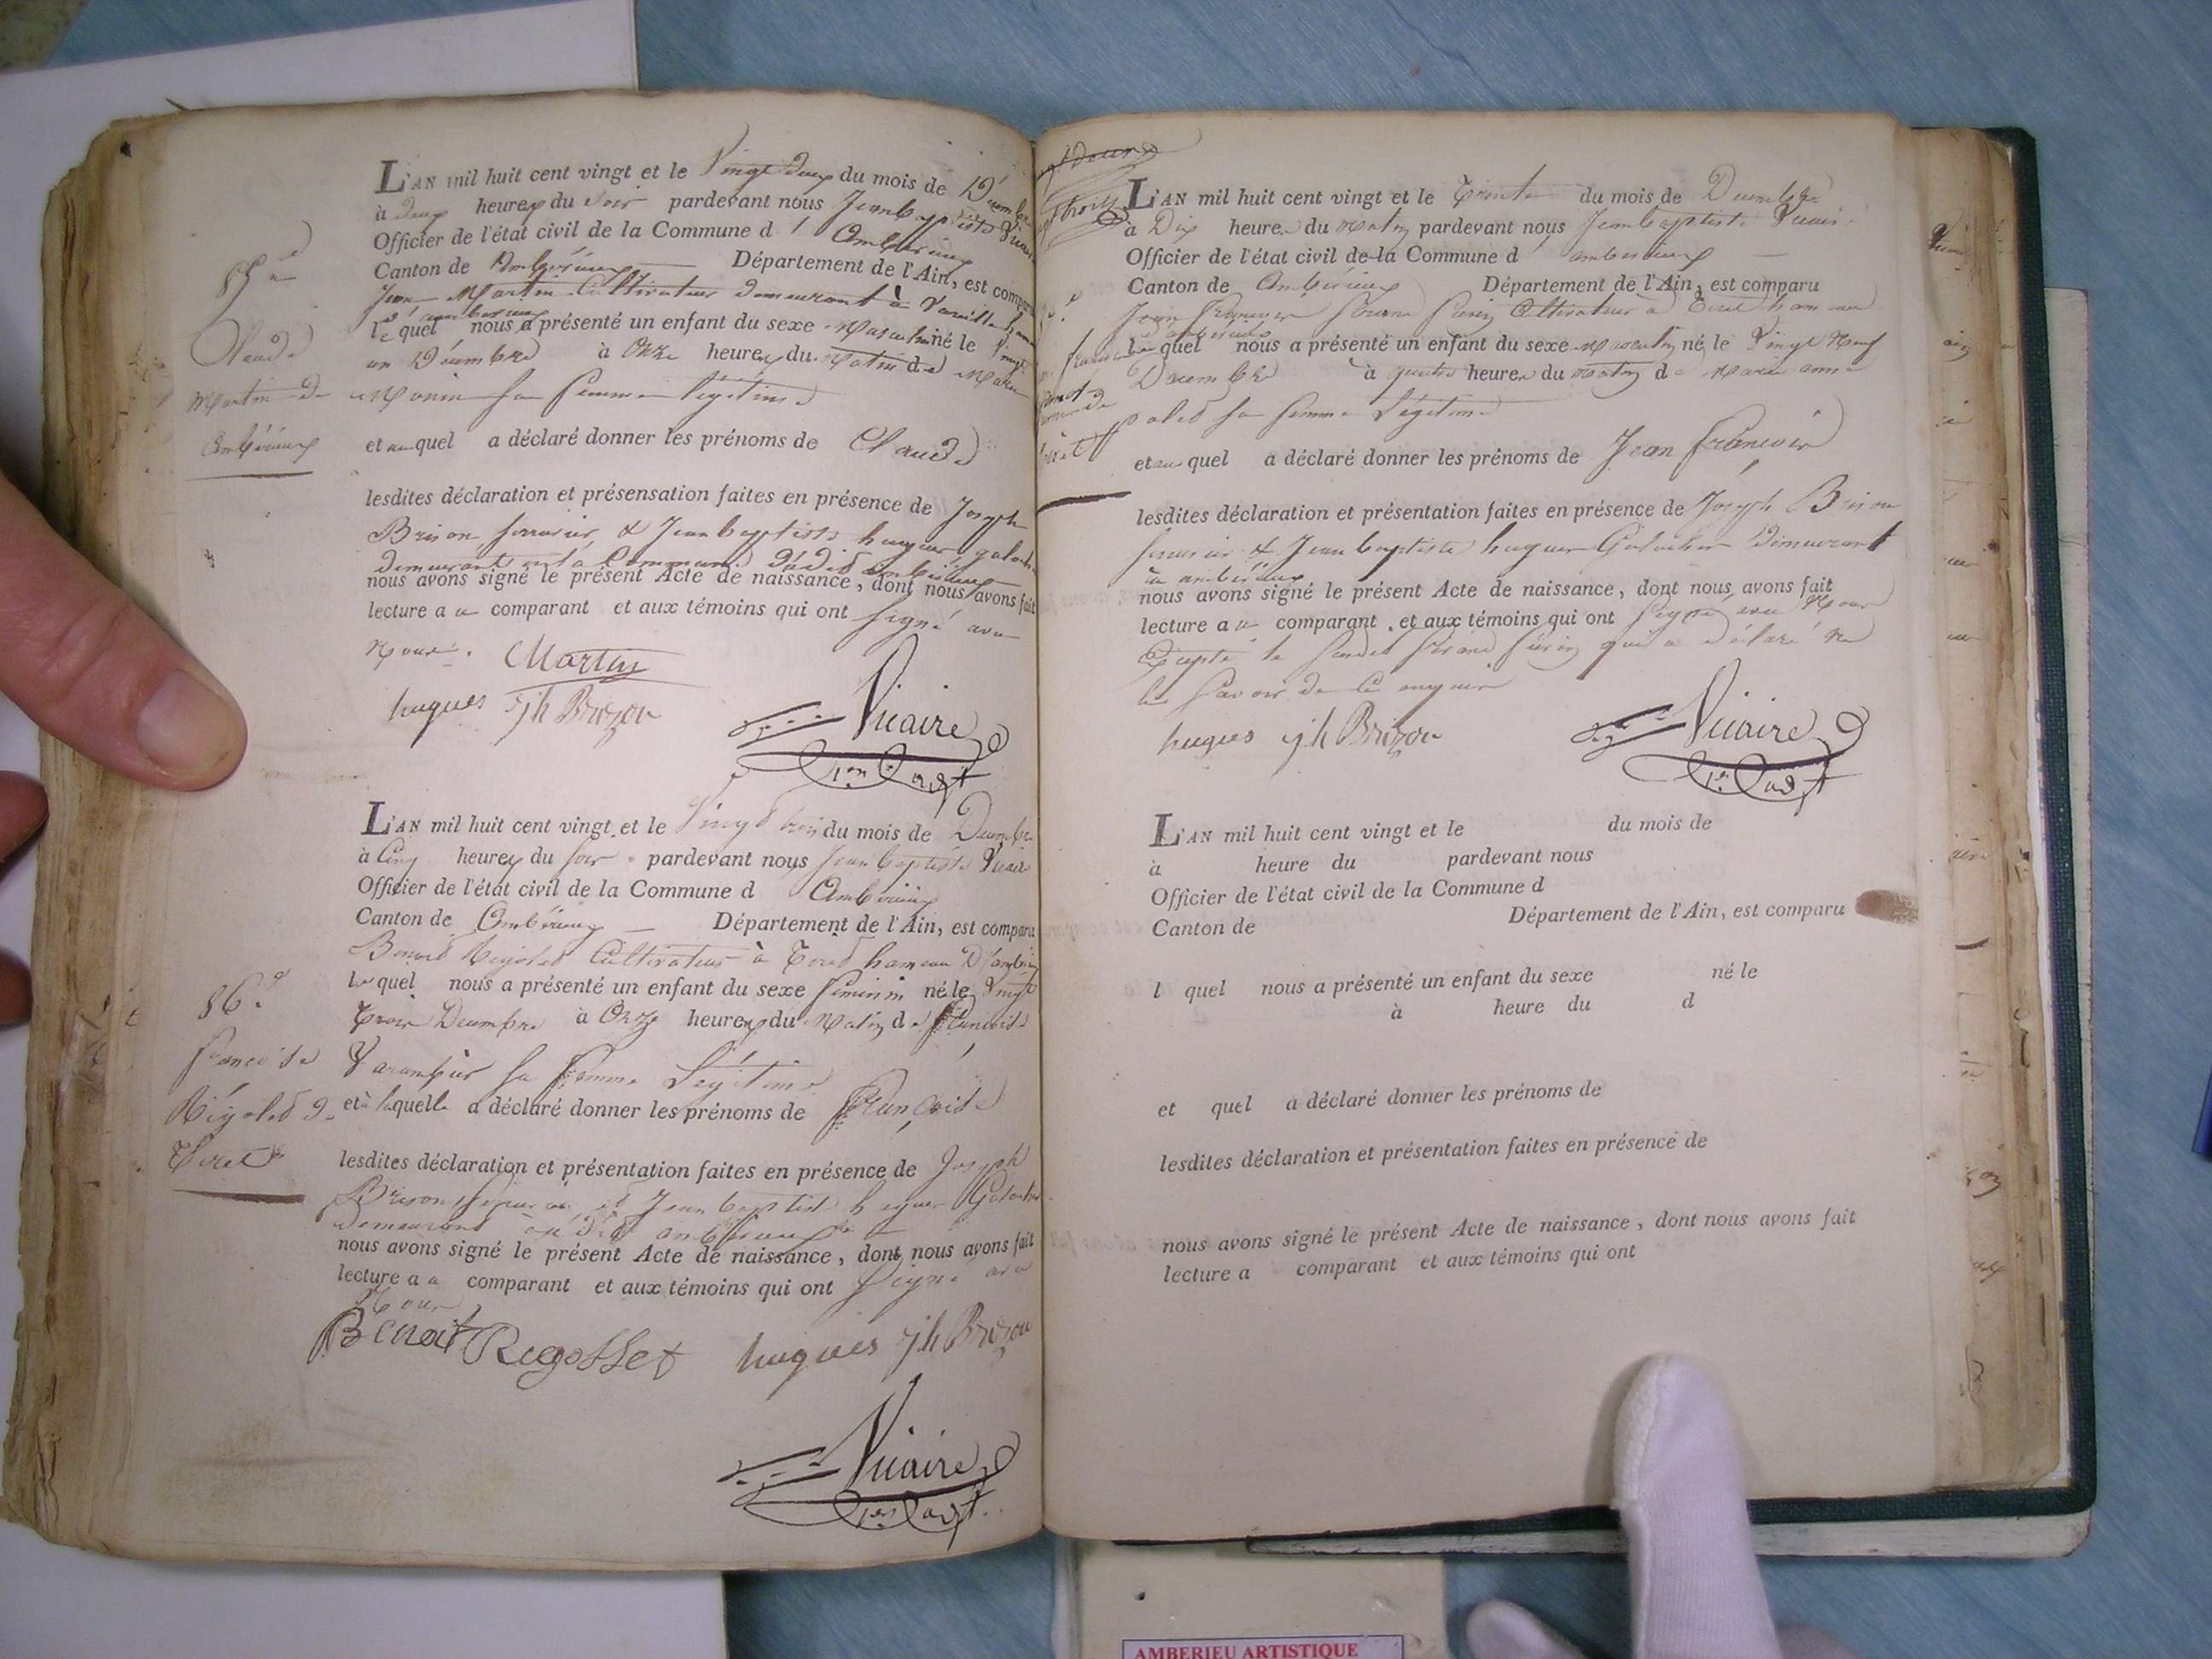 85.e
Claude
Martin de
Ambérieux
L'AN mil huit cent vingt et le Vingt deux du mois de Décembre
à Deux heures du Soir pardevant nous Jean baptiste Vicaire
Officier de l'état civil de la Commune d'Ambérieux
Canton de Ambérieux Département de l'Ain, est comparu
Jean Martin Cultivateur demeurant à
d'ambérieux
lequel nous a présenté un enfant du sexe Masculin né le Vingt
un Décembre à Onze heures du Matin de Marie
Monin sa femme légitime
et auquel a déclaré donner les prénoms de Claude
lesdites déclaration et présensation faites en présence de Joseph
Brison & Jean baptiste hugues
demeurants ambérieux
nous avons signé le présent Acte de naissance, dont nous avons fait
lecture au comparant et aux témoins qui ont signé avec
Nous. Martin
hugues jh Brizon
Vicaire
1er adjt
86.e
francoise
Rigolet d.
Tiret
L'AN mil huit cent vingt et le Vingt trois du mois de Décembre
à Cinq heures du soir pardevant nous Jean baptiste Vicaire
Officier de l'état civil de la Commune d Ambérieux
Canton de Ambérieux Département de l'Ain, est comparu
Benoit Rigolet Cultivateur à Tiret hameau D'ambérieux
lequel nous a présenté un enfant du sexe feminin né le Vingt
Trois Decembre à Onze heures du Matin de francoise
sa femme Légitime
et à laquelle a déclaré donner les prénoms de françoise
lesdites déclaration et présentation faites en présence de Joseph
Brison et Jean baptiste hugues
demeurant ambérieux
nous avons signé le présent Acte de naissance, dont nous avons fait
lecture au comparant et aux témoins qui ont signé avec
Nous
Benoit Regosset hugues jh Brizon
Vicaire
1er adjt
L'AN mil huit cent vingt et le Trente du mois de Decembre
à Dix heures du Matin pardevant nous Jean baptiste Vicaire
Officier de l'état civil de la Commune d ambérieux
Canton de Ambérieux Département de l'Ain, est comparu
Jean François Cultivateur à Tiret hameau
d'ambérieux
lequel nous a présenté un enfant du sexe Masculin né le Vingt Neuf
Decembre à quatre heures du Matin de Marie anne
sa femme Légitime
et auquel a déclaré donner les prénoms de Jean françois
lesdites déclaration et présentation faites en présence de Joseph Brison
& Jean baptiste hugues demeurant
à ambérieux
nous avons signé le présent Acte de naissance, dont nous avons fait
lecture au comparant et aux témoins qui ont signé avec Nous
qui a déclaré ne
le savoir de ce enquis
hugues jh Brizon
Vicaire
1er adjt
L'AN mil huit cent vingt et le du mois de
à heure du pardevant nous
Officier de l'état civil de la Commune d
Canton de Département de l'Ain, est comparu
l quel nous a présenté un enfant du sexe né le
à heure du d
et quel a déclaré donner les prénoms de
lesdites déclaration et présentation faites en présence de
nous avons signé le présent Acte de naissance, dont nous avons fait
lecture a comparant et aux témoins qui ont
AMBERIEU ARTISTIQUE